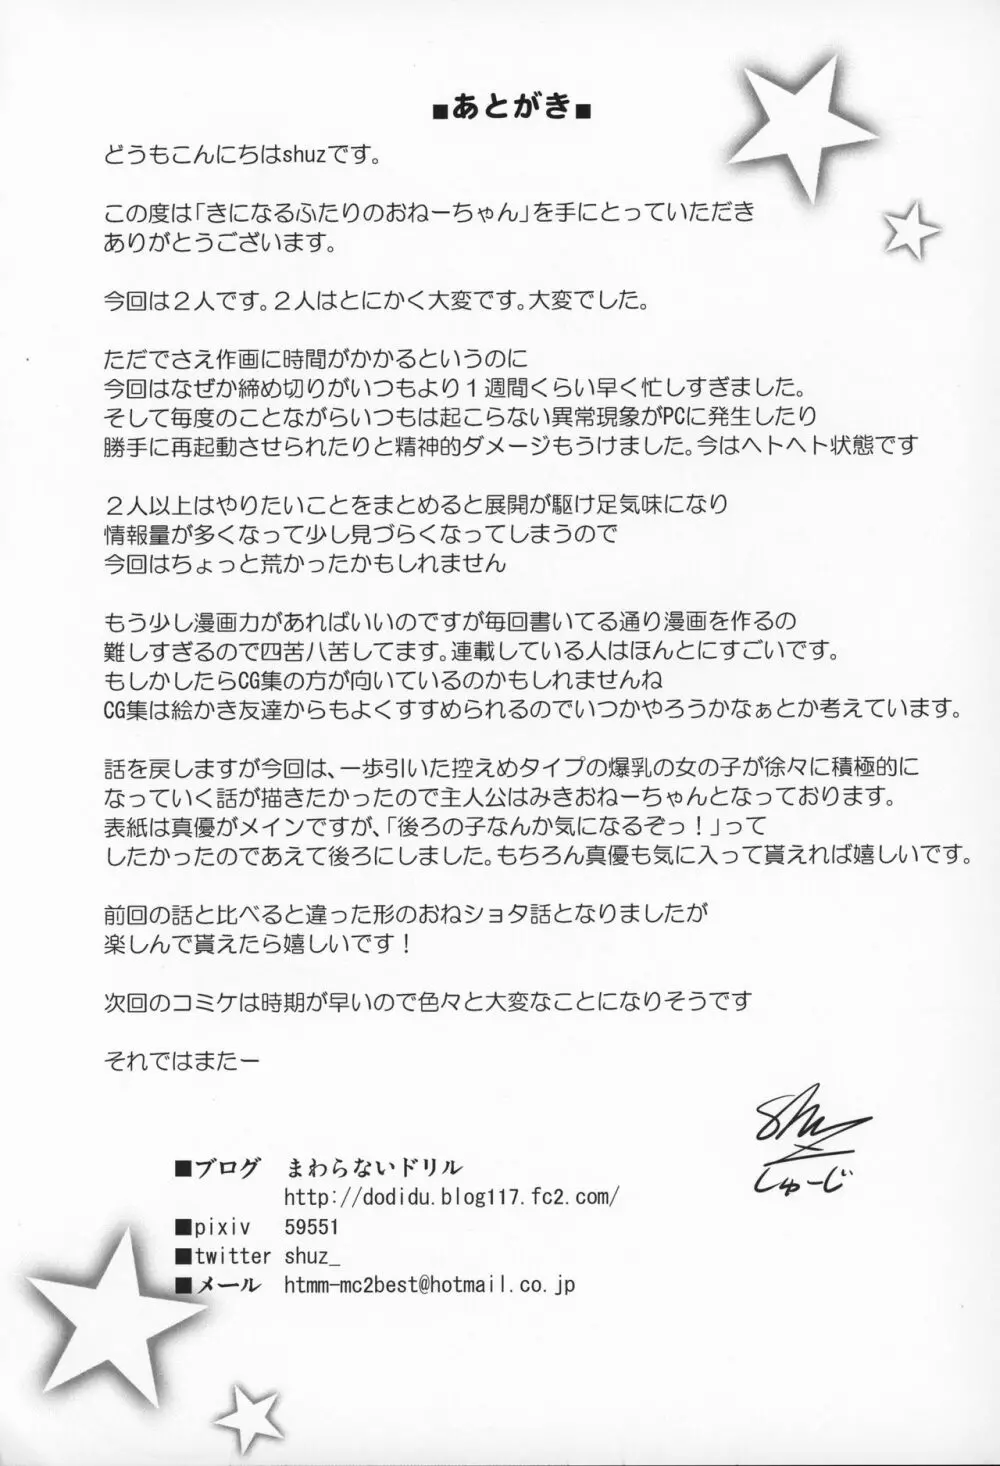 ■あとがき■
どうもこんにちはshuzです。
この度は「きになるふたりのおねーちゃん」を手にとっていただき
ありがとうございます。
今回は２人です。２人はとにかく大変です。大変でした。
ただでさえ作画に時間がかかるというのに
今回はなぜか締め切りがいつもより１週間くらい早く忙しすぎました。
そして毎度のことながらいつもは起こらない異常現象がPCに発生したり
勝手に再起動させられたりと精神的ダメージもうけました。今はヘトヘト状態です
２人以上はやりたいことをまとめると展開が駆け足気味になり
情報量が多くなって少し見づらくなってしまうので
今回はちょっと荒かったかもしれません
もう少し漫画力があればいいのですが毎回書いてる通り漫画を作るの
難しすぎるので四苦八苦してます。連載している人はほんとにすごいです。
もしかしたらCG集の方が向いているのかもしれませんね
CG集は絵かき友達からもよくすすめられるのでいつかやろうかなぁとか考えています。
話を戻しますが今回は、一歩引いた控えめタイプの爆乳の女の子が徐々に積極的に
なっていく話が描きたかったので主人公はみきおねーちゃんとなっております。
表紙は真優がメインですが、「後ろの子なんか気になるぞっ！」って
したかったのであえて後ろにしました。もちろん真優も気に入って貰えれば嬉しいです。
前回の話と比べると違った形のおねショタ話となりましたが
楽しんで貰えたら嬉しいです！
次回のコミケは時期が早いので色々と大変なことになりそうです
それではまたー
shuz
しゅーじ
■ブログ　まわらないドリル
http://dodidu.blog117.fc2.com/
■pixiv　59551
■twitter shuz_
■メール　htmm-mc2best@hotmail.co.jp